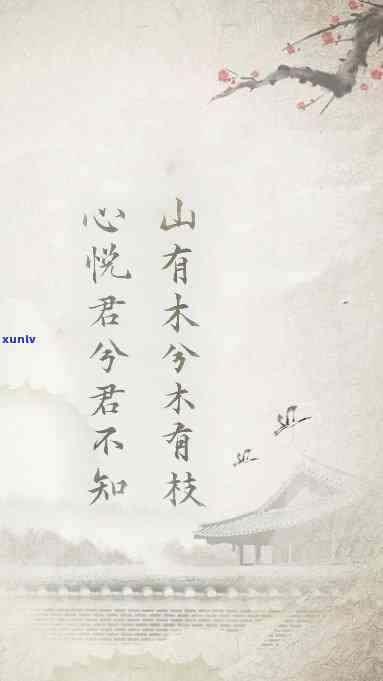 山有木兮木有枝
心悦君兮君不知
xunlv